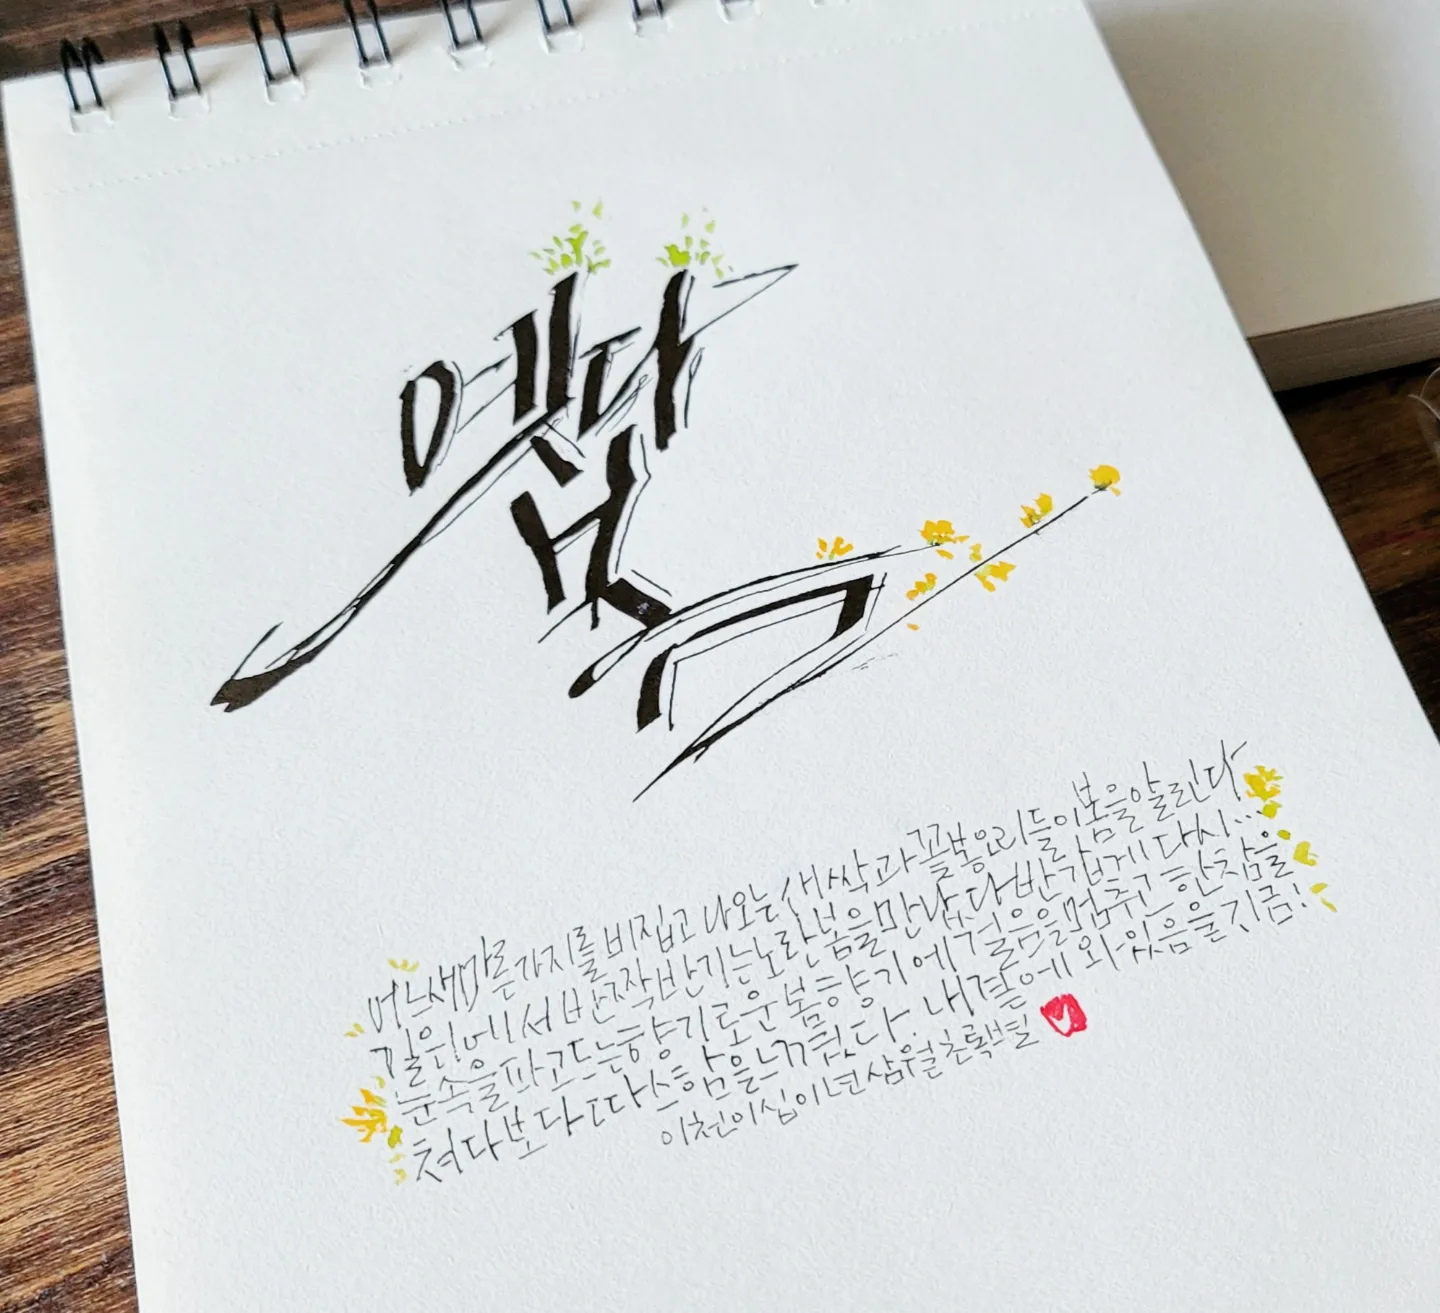 옙다
봄
어느새 마른 가지를 비집고 나오는 새싹과 꽃봉오리들이 봄을 알린다
길 위에서 반짝 반기는 노란 봄을 만났다 반갑게 다시...
눈 속을 파고드는 향기로운 봄 향기에 걸음을 멈추고 한참을
쳐다보다 따스함을 느꼈다. 내 곁에 와 있음을 지금!
이천이십이년 삼월 초록별